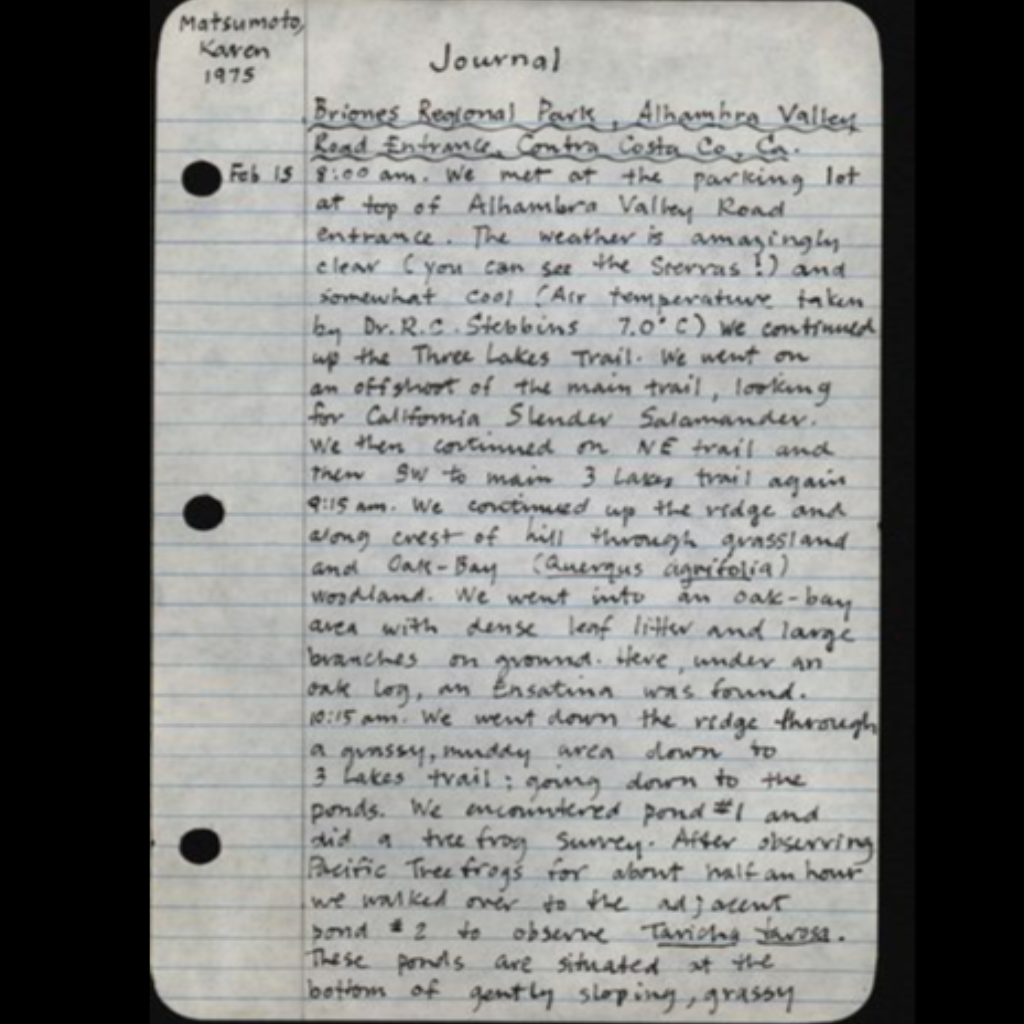 Matsumoto,
Karen
1975
Journal
Briones Regional Park, Alhambra Valley
Road Entrance, Contra Costa Co, Ca.
Feb 15 8:00 am. We met at the parking lot
at top of Alhambra Valley Road
entrance. The weather is amazingly
clear (you can see the Sierras!) and
somewhat cool (Air temperature taken
by Dr. R.C. Stebbins 7.0° C) We continued
up the Three Lakes Trail. We went on
an offshoot of the main trail, looking
for California Slender Salamander.
We then continued on NE trail and
then SW to main 3 Lakes trail again
9:15 am. We continued up the ridge and
along crest of hill through grassland
and Oak-Bay (Quercus agrifolia)
woodland. We went into an oak-bay
area with dense leaf litter and large
branches on ground. Here, under an
oak log, an Ensatina was found.
10:15 am. We went down the ridge through
a grassy, muddy area down to
3 Lakes trail: going down to the
ponds. We encountered pond #1 and
did a tree frog survey. After observing
Pacific Treefrogs for about half an hour
we walked over to the adjacent
pond #2 to observe Taricha tarosa.
These ponds are situated at the
bottom of gently sloping, grassy